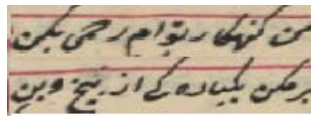 من کنهکار توام رحمی بکن
بر مکن یکباره کے از بیخ و بن